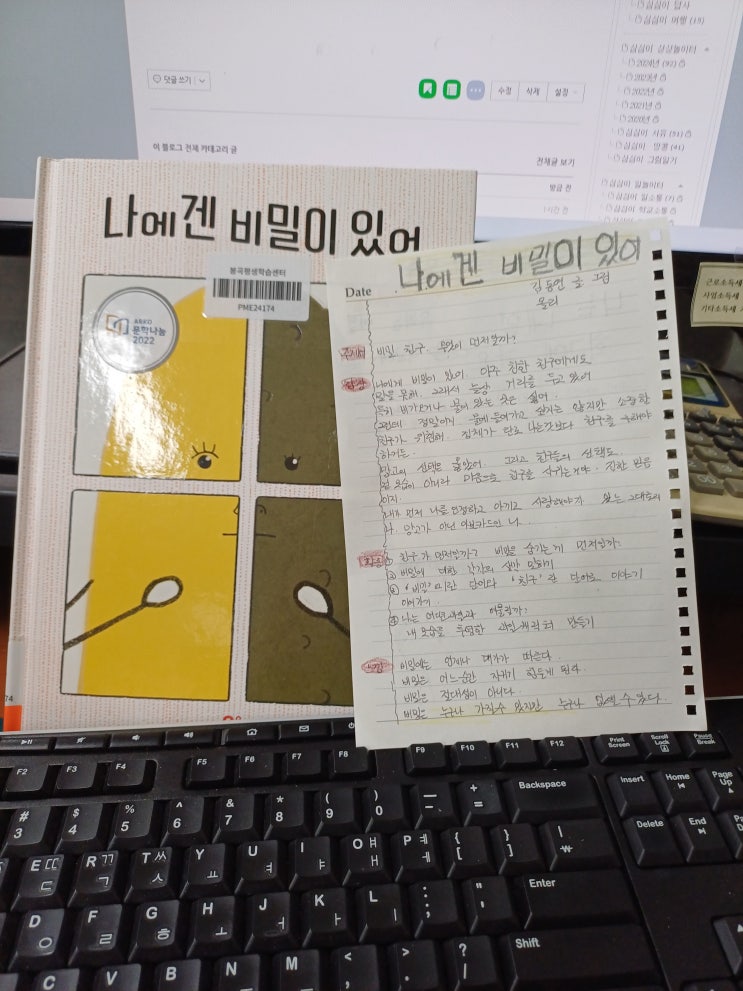 심심이 답사
심심이 여행 (13)
심심이 상상놀이터
2024년 (92)
2023년
2022년
2021년
2020년
심심이 사유 (51)
심심이 명콩 (41)
심심이 그림일기
심심이 일놀이터
심심이 일소통 (7)
심심이 학교소통
댓글 쓰기
수정 삭제 설정
이 블로그 전체 카테고리 글
전체글 보기
방금 전
1시간 전
나에겐 비밀이 있어
봉곡평생학습센터
PME24174
ARKO
문학나눔
2022
74
근로소득세
사업소득세
기타소득세
Date
나에겐 비밀이 있어
김동연 글 그림
올리
주제
비밀 친구. 무엇이 먼저일까?
나에게 비밀이 있어. 아주 친한 친구에게도
말을 못해. 그래서 늘상 거리를 두고 있어
특히 비가 오거나 물이 있는 곳은 싫어.
그런데 정말이지 물에 들어가고 싶지는 않지만 소중한
친구가 위험해. 정체가 탄로 나는것보다 친구를 구해야
하거든.
망고의 선택은 옳았어. 그리고 친구들의 선택도.
겉모습이 아니라 마음으로 친구를 사귀는거야. 진한 믿음
이지.
내가 먼저 나를 인정하고 아끼고 사랑해야지 있는 그대로의
나. 망고가 아닌 아보카도인 나...
친구가 먼저일까? 비밀을 숨기는게 먼저일까?
비밀에 대한 각각의 생각 말하기
'비밀'이란 단어와 '친구'란 단어로 이야기
이어가기.
나는 어떤 과일과 어울릴까?
내 모습을 투영한 과일캐릭터 만들기
느낌
비밀에는 언제나 대가가 따른다.
비밀은 어느순간 자기가 힘들게 된다.
비밀은 절대성이 아니다.
비밀은 누구나 가질수 있지만 누구나 없앨 수 있다.
F2 F3 F4 F5 F6 F7 F8 F9 F10 F11 F12 Print Screen Scroll Lock Pause Break
# 3 $ 4 % 5 ^ 6 & 7 * 8 ( 9 ) 0 — - + = Backspace Insert Home Page Up
E ㄸ ㄷ R ㄲ ㄱ T ㅆ ㅅ Y ㅛ U ㅕ I ㅑ O ㅒ ㅐ P ㅖ ㅔ { [ } ] | ₩ Delete End
D ㅇ F ㄹ G ㅎ H ㅗ J ㅓ K ㅏ L ㅣ : ; " ' Enter
C V B N M < , > . ? / Shift